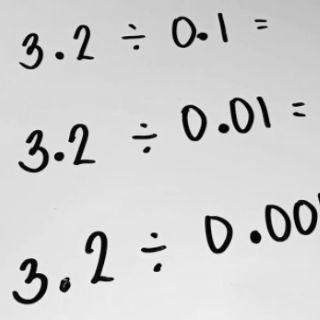 3.2 ÷ 0.1 =
3.2 ÷ 0.01 =
3.2 ÷ 0.00